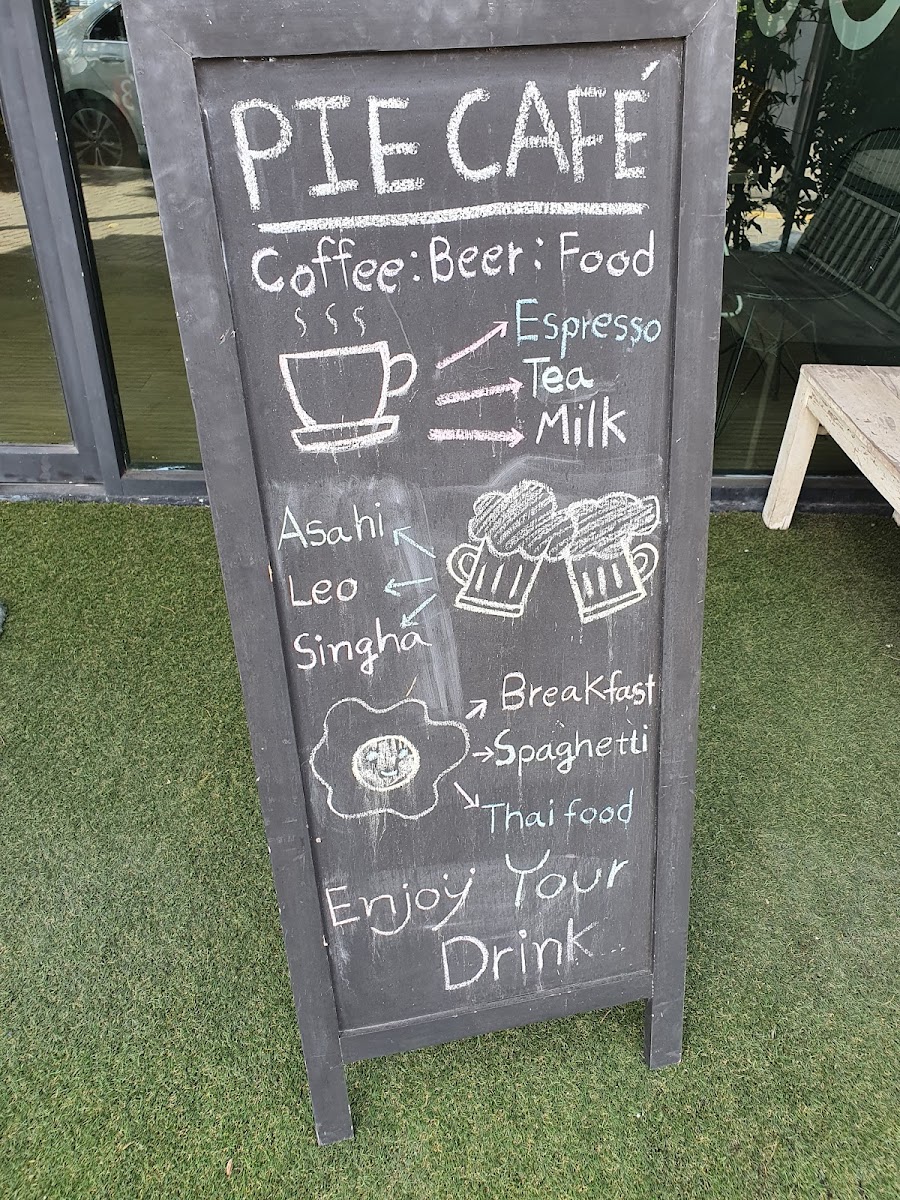 PIE CAFÉ
Coffee : Beer : Food
Espresso
Tea
Milk
Asahi
Leo
Singha
Breakfast
Spaghetti
Thai food
Enjoy Your
Drink...